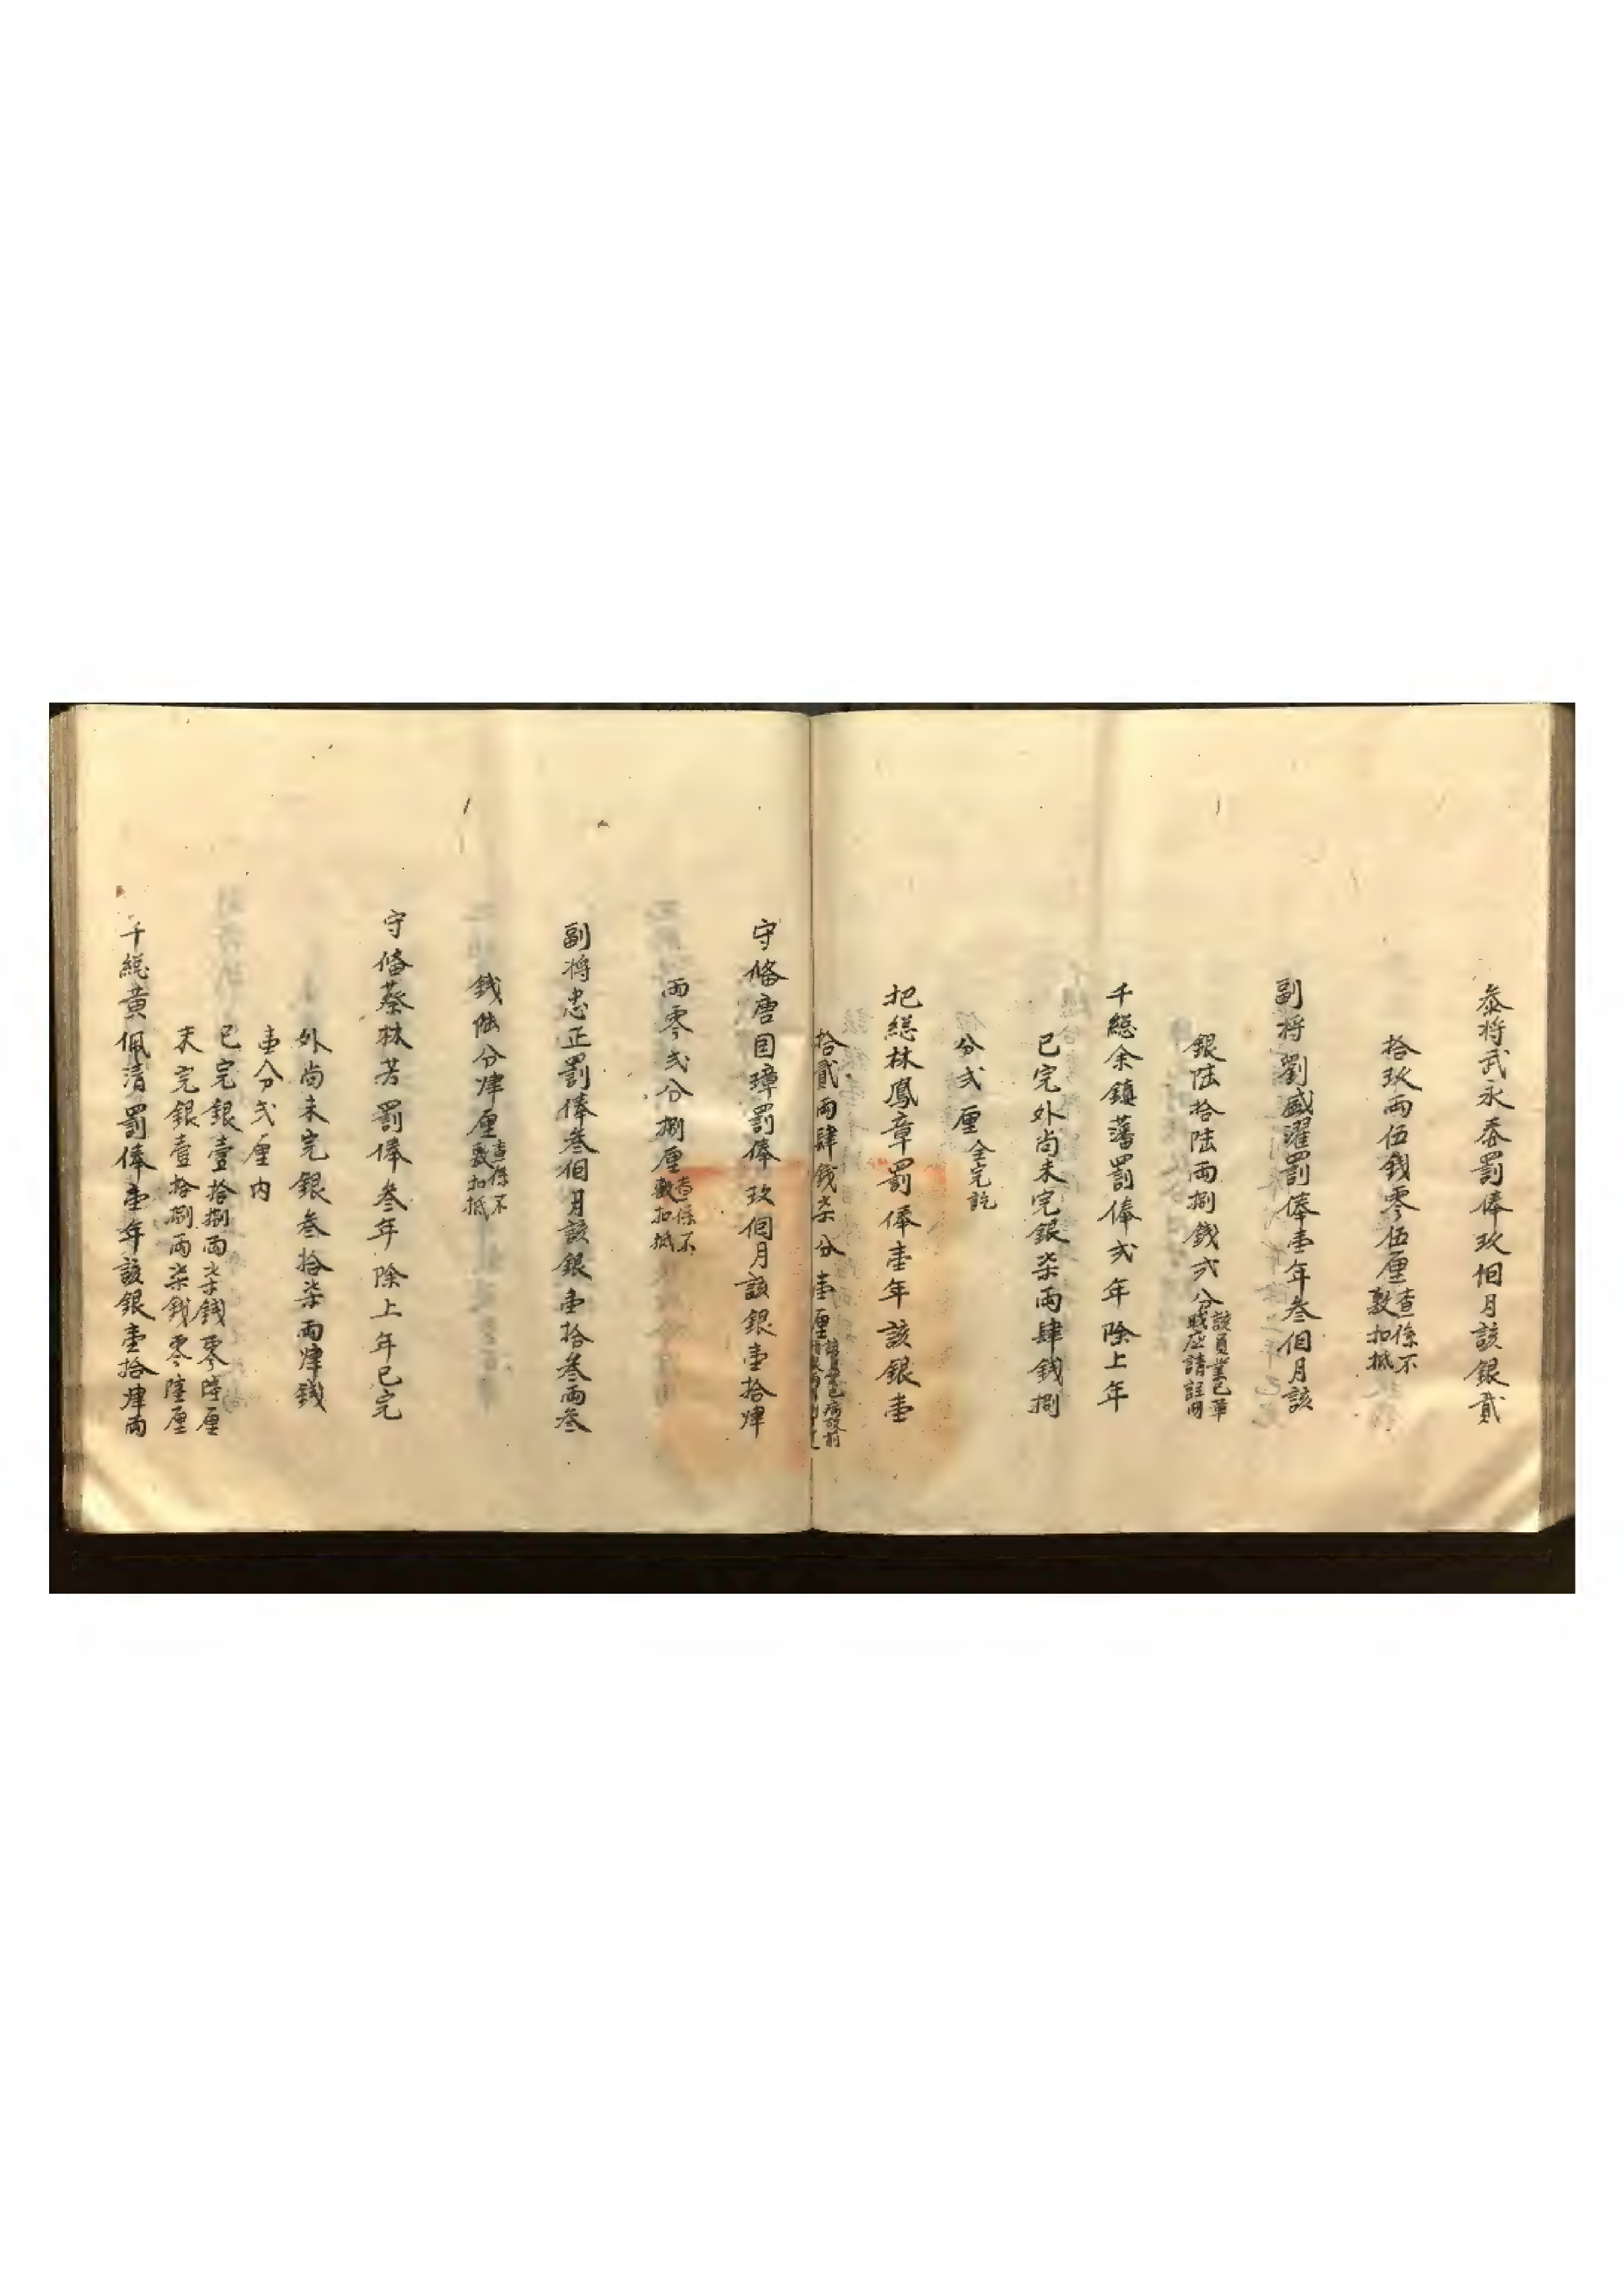 叅将武永泰罰俸玖個月該銀貳
拾玖兩伍錢零伍厘查係不敷扣抵
副将劉盛濯罰俸壹年叁個月該
銀陸拾陸兩捌錢弍分該員業已革職應請註冊
千総余鎮藩罰俸弍年除上年
已完外尚未完銀柒兩肆錢捌
分弍厘全完訖
把総林鳳章罰俸壹年該銀壹
拾貳兩肆錢柒分壹厘
守俻唐國璋罰俸玖個月該銀壹拾肆
兩零弍分捌厘查係不敷扣抵
副将忠正罰俸叁個月該銀壹拾叁兩叁
錢陆分肆厘查係不敷扣抵
守俻蔡林芳罰俸叁年除上年已完
外尚未完銀叁拾柒兩肆錢
壹分弍厘内
已完銀壹拾捌兩柒錢零陸厘
未完銀壹拾捌兩柒錢零陸厘
千総黄佩清罰俸壹年該銀壹拾肆兩